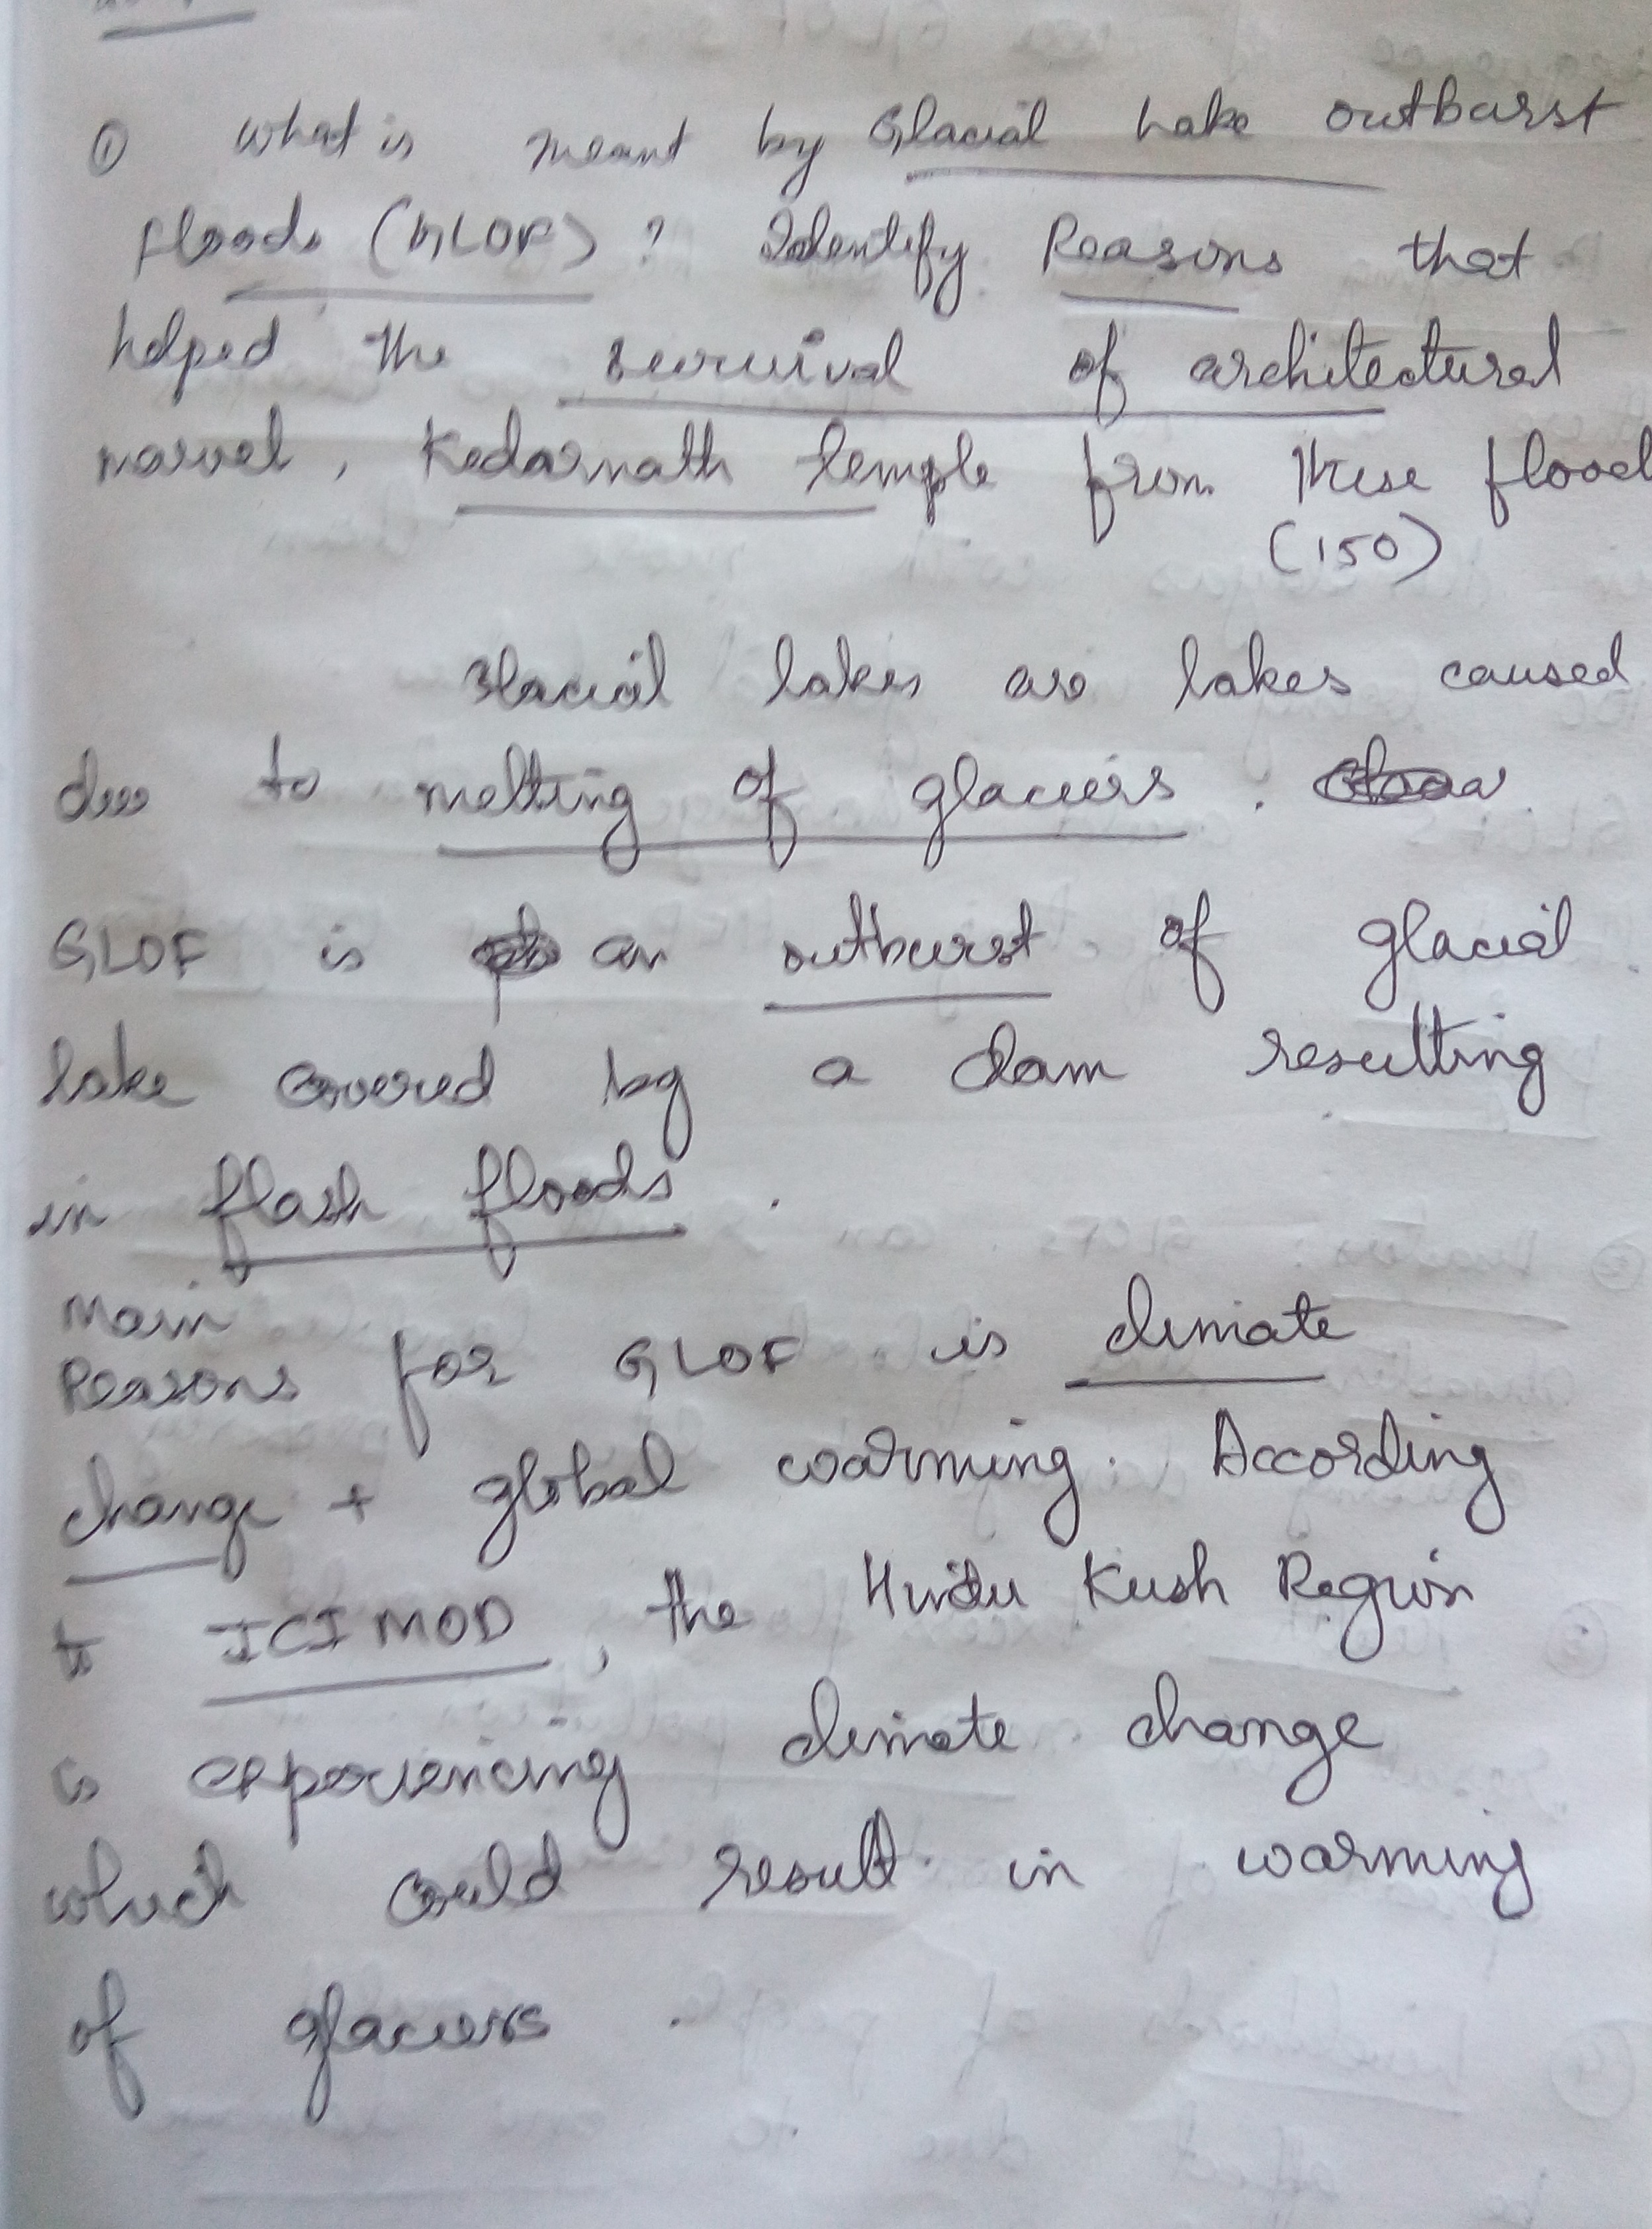 ① What is meant by Glacial Lake outburst
Floods (GLOF) ? Identify Reasons that
helped the survival of architectural
marvel, Kedarnath temple from these flood
(150)
Glacial lakes are lakes caused
due to melting of glaciers.
GLOF is an outburst of glacial
lake covered by a dam resulting
in flash floods.
Main
Reasons for GLOF is climate
change + global warming. According
to ICIMOD, the Hindu Kush Region
is experiencing climate change
which could result in warming
of glaciers.